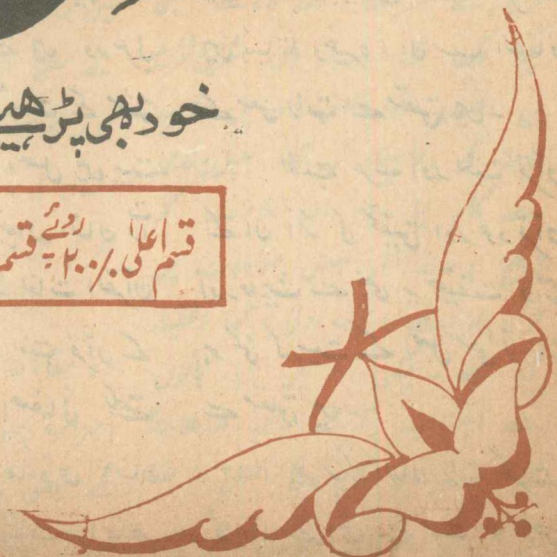 خود بھی پڑھیے
قسم اعلیٰ ۲۰۰/ روپے قسم